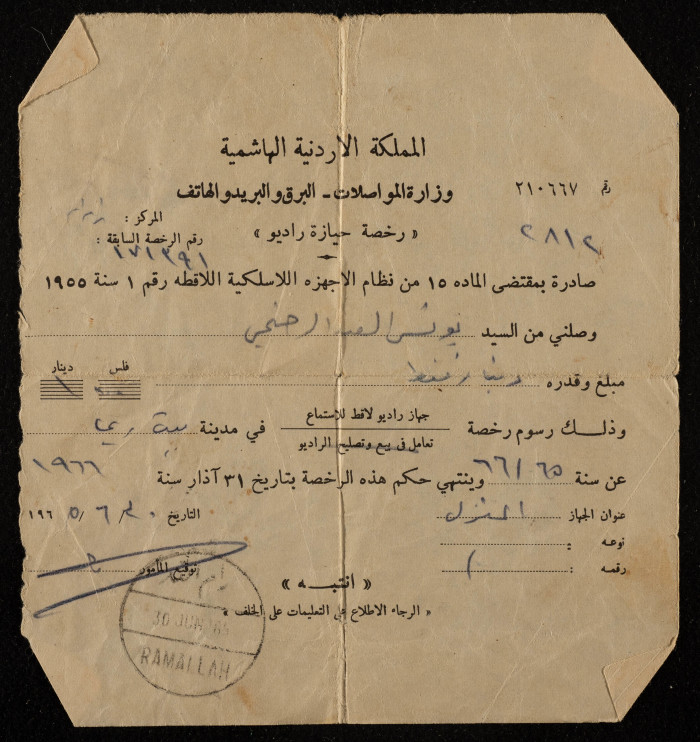 المملكة الاردنية الهاشمية
وزارة المواصلات - البرق والبريد والهاتف
رقم ٢١٠٦٦٧
المركز :
« رخصة حيازة راديو »
٢٨١٢
رقم الرخصة السابقة :
١٧١٣٩١
صادرة بمقتضى الماده ١٥ من نظام الاجهزه اللاسلكية اللاقطه رقم ١ سنة ١٩٥٥
وصلني من السيد يونس العبد
فلس دينار
مبلغ وقدره دينار فقط ١
وذلك رسوم رخصة جهاز راديو لاقط للاستماع
تعامل في بيع وتصليح الراديو
في مدينة بيت ريما
عن سنة ٦٦/٦٥ وينتهي حكم هذه الرخصة بتاريخ ٣١ آذار سنة ١٩٦٦
عنوان الجهاز المنزل
التاريخ ٣٠/٦/١٩٦٥
نوعه :
رقمه :
توقيع المأمور
« انتبه »
« الرجاء الاطلاع على التعليمات على الخلف »
رام الله
30 JUN 965
RAMALLAH